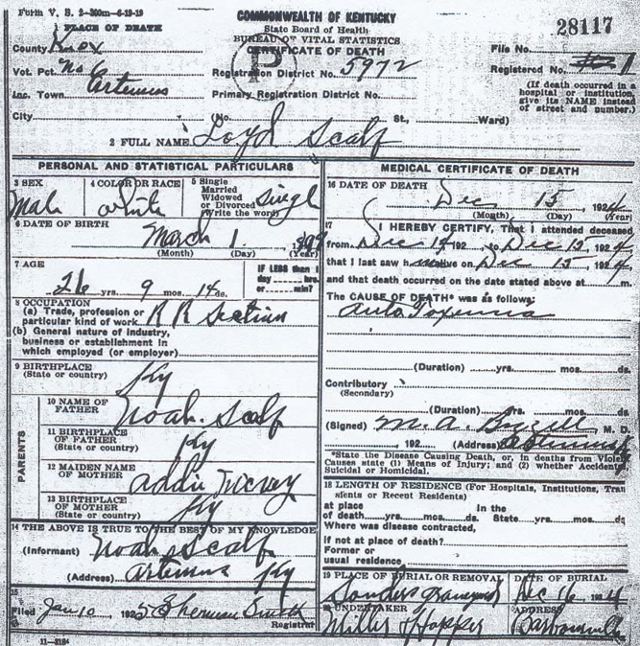 Form V. S. 2-300m-6-19-19
COMMONWEALTH OF KENTUCKY
State Board of Health
BUREAU OF VITAL STATISTICS
CERTIFICATE OF DEATH
28117
1 PLACE OF DEATH
County Knox
File No.
Vot. Pct. No 6
Registration District No. 5972
Registered No. 1
Inc. Town Artemus
Primary Registration District No.
(If death occurred in a hospital or institution, give its NAME instead of street and number.)
City (No. St., Ward)
P
2 FULL NAME Loyd Scalf
PERSONAL AND STATISTICAL PARTICULARS
3 SEX
Male
4 COLOR OR RACE
White
5 Single
Married
Widowed
or Divorced
(Write the word)
Singl
6 DATE OF BIRTH
March 1
(Month) (Day) (Year)
7 AGE
26 yrs. 9 mos. 14 ds.
IF LESS than 1
day hrs.
or min?
8 OCCUPATION
(a) Trade, profession or
particular kind of work R R Section
(b) General nature of industry,
business or establishment in
which employed (or employer)
9 BIRTHPLACE
(State or country)
Ky
PARENTS
10 NAME OF
FATHER
Noah. Scalf
11 BIRTHPLACE
OF FATHER
(State or country)
Ky
12 MAIDEN NAME
OF MOTHER
Addie
13 BIRTHPLACE
OF MOTHER
(State or country)
Ky
14 THE ABOVE IS TRUE TO THE BEST OF MY KNOWLEDGE
(Informant) Noah Scalf
(Address) Artemus Ky
15
Filed Jan 10 1925 Sherman
Registrar
11-3184
MEDICAL CERTIFICATE OF DEATH
16 DATE OF DEATH
Dec 15 1924
(Month) (Day) (Year)
17
I HEREBY CERTIFY, That I attended deceased
from Dec 14 192 to Dec 15, 1924
that I last saw h alive on Dec 15 1924
and that death occurred on the date stated above at m.
The CAUSE OF DEATH* was as follows:
Auto Toxemia
(Duration) yrs. mos. ds.
Contributory
(Secondary)
(Duration) yrs. mos. ds.
(Signed) M. A. M. D.
, 192 (Address) Artemus
*State the Disease Causing Death, or, in deaths from Violent
Causes state (1) Means of Injury; and (2) whether Accidental,
Suicidal or Homicidal.
18 LENGTH OF RESIDENCE (For Hospitals, Institutions, Tran
sients or Recent Residents)
at place
of death yrs. mos. ds.
In the
State yrs. mos. ds.
Where was disease contracted,
if not at place of death?
Former or
usual residence
19 PLACE OF BURIAL OR REMOVAL
Sanders Graveyard
DATE OF BURIAL
Dec 16 1924
20 UNDERTAKER
Miller & Hopper
ADDRESS
Barbourville